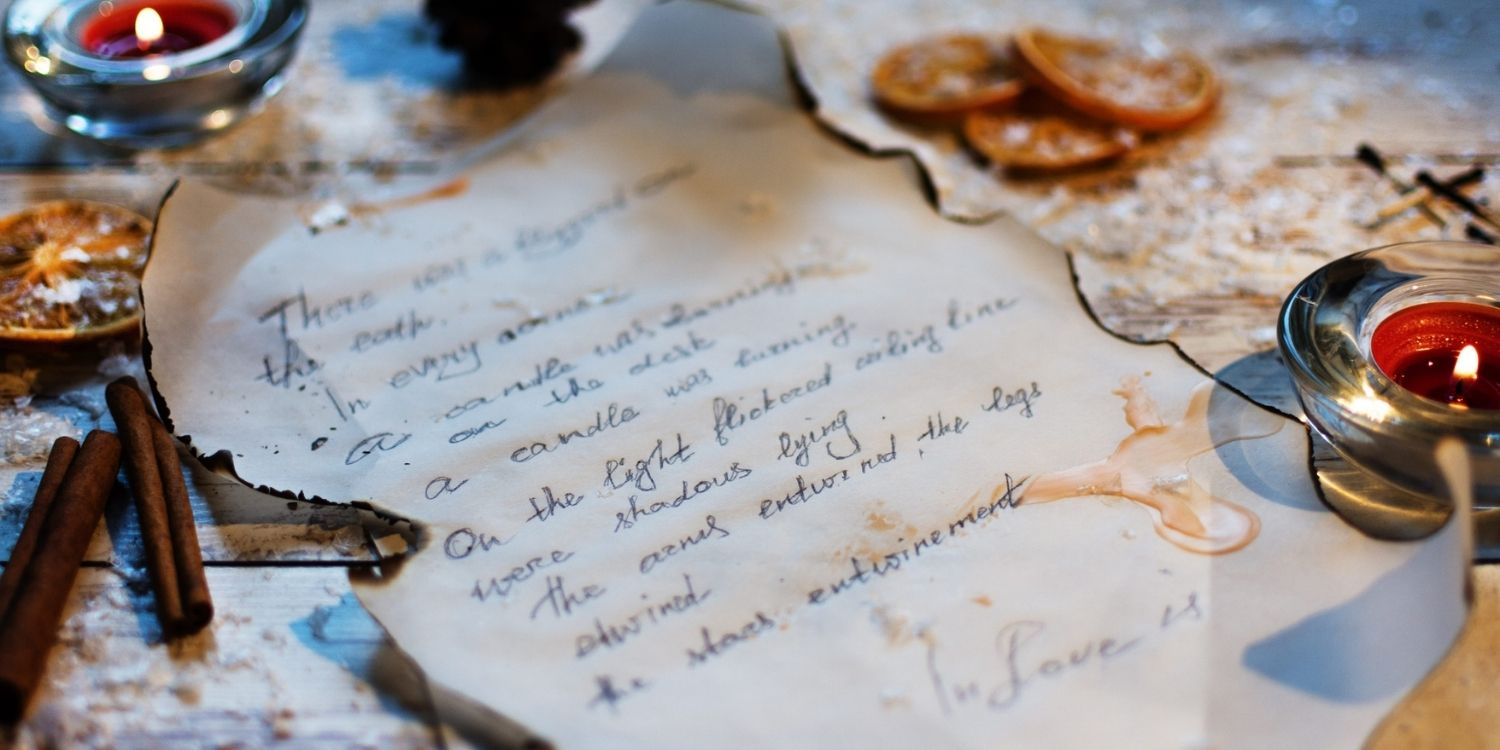 There was a blizzard on
the eath.
In every
a candle was burning
on the desk
a candle was burning
On the light flickered ceiling line
were shadows lying
the arms entwined, the legs
etwined
the stars entwinement
In Love is